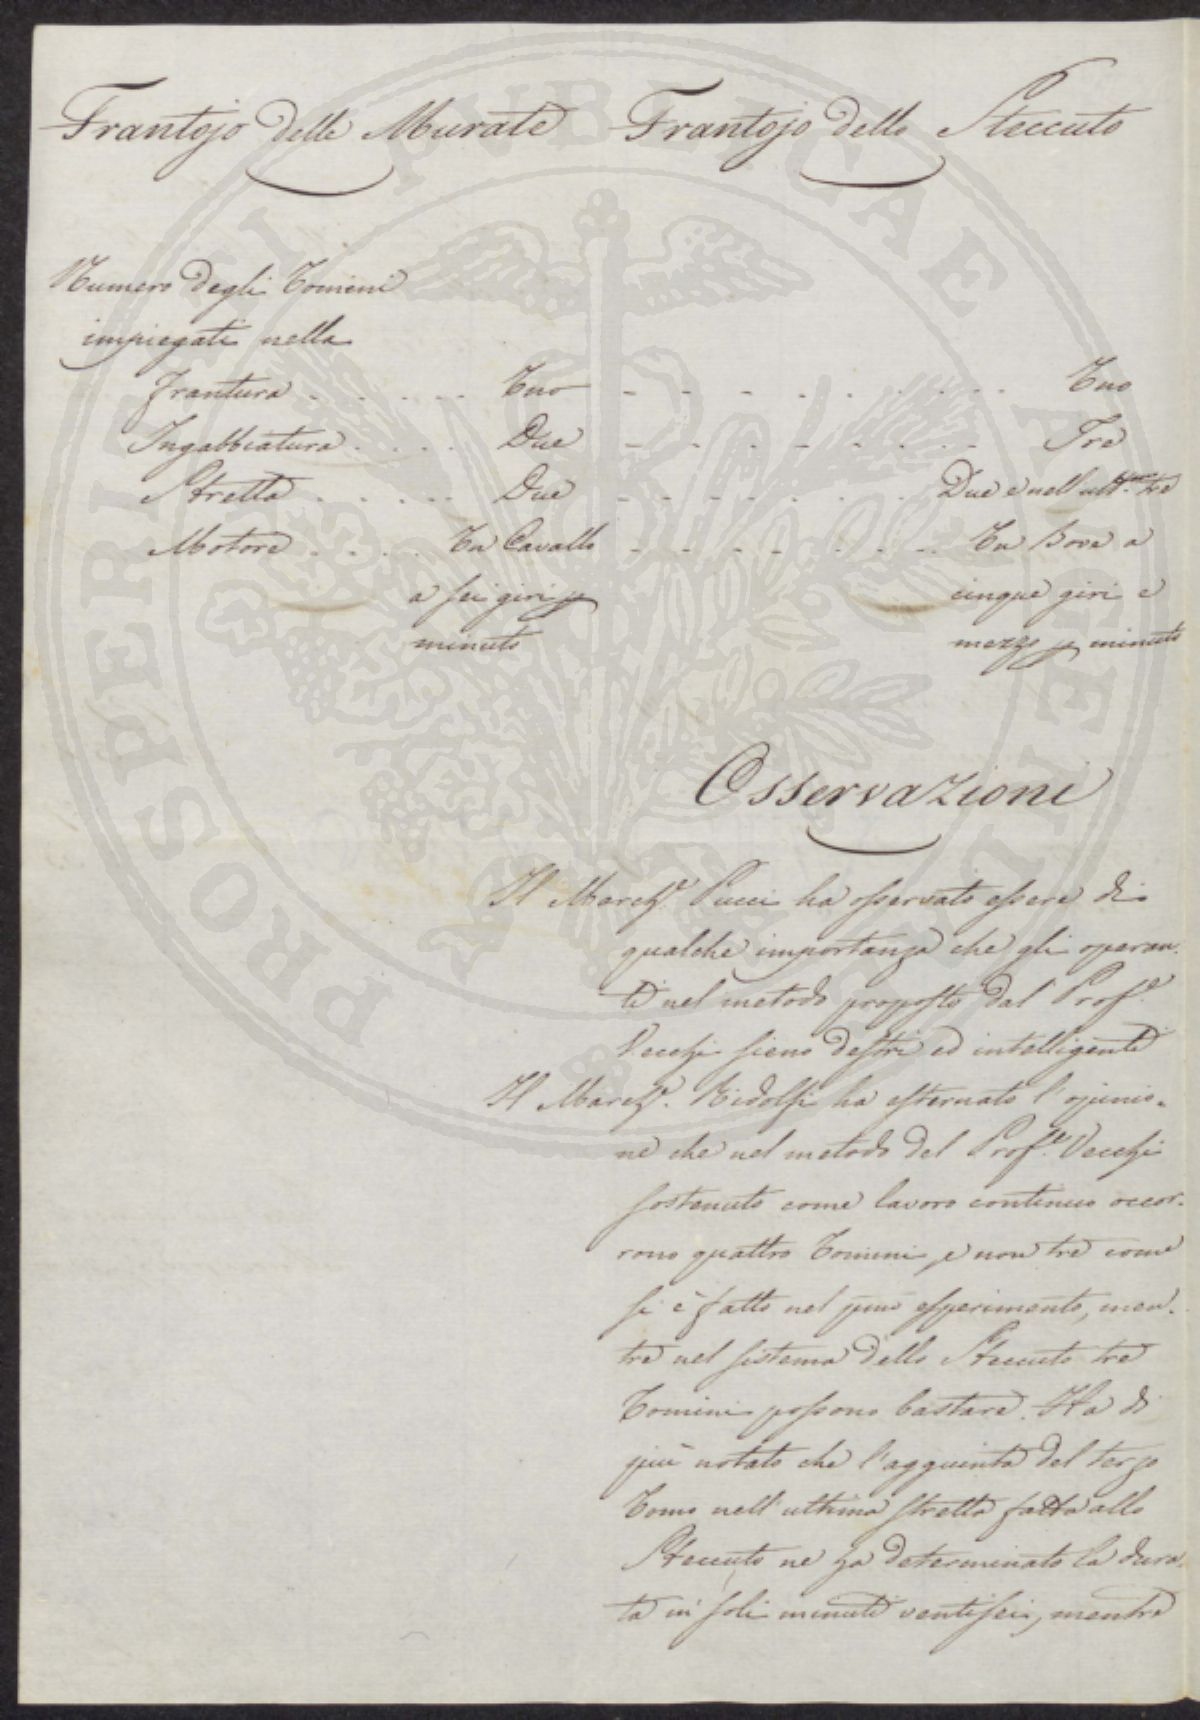 Frantojo delle Murate Frantojo dello Steccuto
Numero degli Uomini
impiegati nella
frantura . . . . . Uno - - - . . . . . . Uno
Ingabbiatura . . . . Due - - - - - - - Tre
Stretta . . . . . Due - - - - . . . Due e nell' ult.ma tre
Motore . . . . Un Cavallo - - - - - - - Un Bove a
a sei giri p cinque giri e
minuto mezzo p minuto
Osservazioni
Il March.e Pucci ha osservato essere di
qualche importanza che gli operan-
ti nel metodo proposto dal Prof.e
Vecchj sieno destri ed intelligenti
Il March.e Ridolfi ha esternato l'opinio-
ne che nel metodo del Prof.e Vecchj
sostenuto come lavoro continuo occor-
rono quattro Uomini, e non tre come
si è fatto nel pnte esperimento, men-
tre nel sistema dello Steccuto tre
Uomini possono bastare. Ha di
più notato che l'aggiunta del terzo
Uomo nell' ultima stretta fatta allo
Steccuto ne ha determinato la dura-
ta in soli minuti ventisei, mentre
PROSPERITATI PUBLICAE AUGENDAE